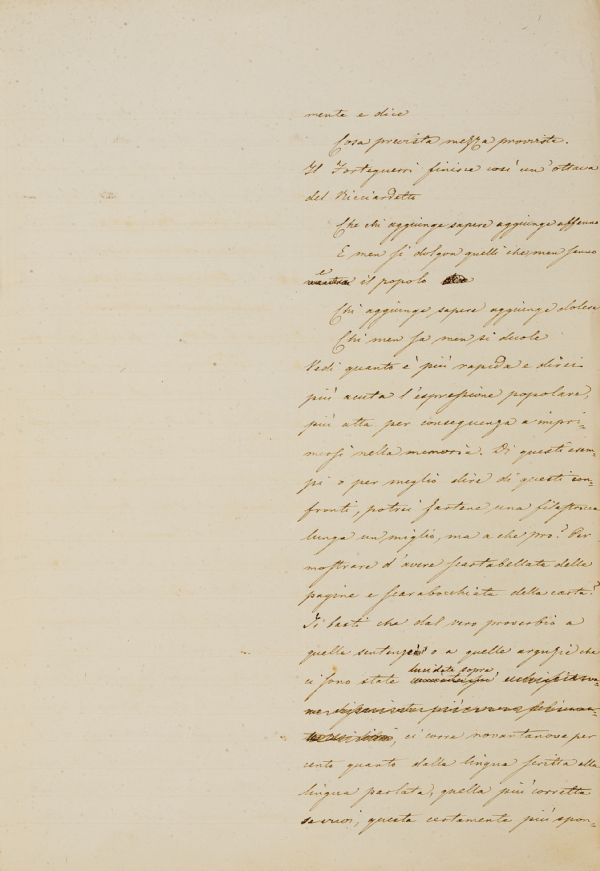 mente e dice
Cosa prevista mezza provvista.
Il Forteguerri finisce così un'ottava
del Ricciardetto
Che chi aggiunge sapere aggiunge affanno
E men si dolgon quelli che men sanno
e il popolo
Chi aggiunge sapere aggiunge dolore
Chi men sa men si duole
Vedi quanto è più rapida e direi
più acuta l'espressione popolare,
più atta per conseguenza a impri-
mersi nella memoria. Di questi esem-
pi o per meglio dire di questi con-
fronti, potrei fartene una filastrocca
lunga un miglio, ma a che pro? Per
mostrare d'avere scartabellate delle
pagine e scarabocchiata della carta?
Ti basti che dal vero proverbio a
quelle sentenze o a quelle arguzie che
lucidate sopra
ci sono state
ci corre novantanove per
cento quanto dalla lingua scritta alla
lingua parlata, quella più corretta
se vuoi, questa certamente più spon-